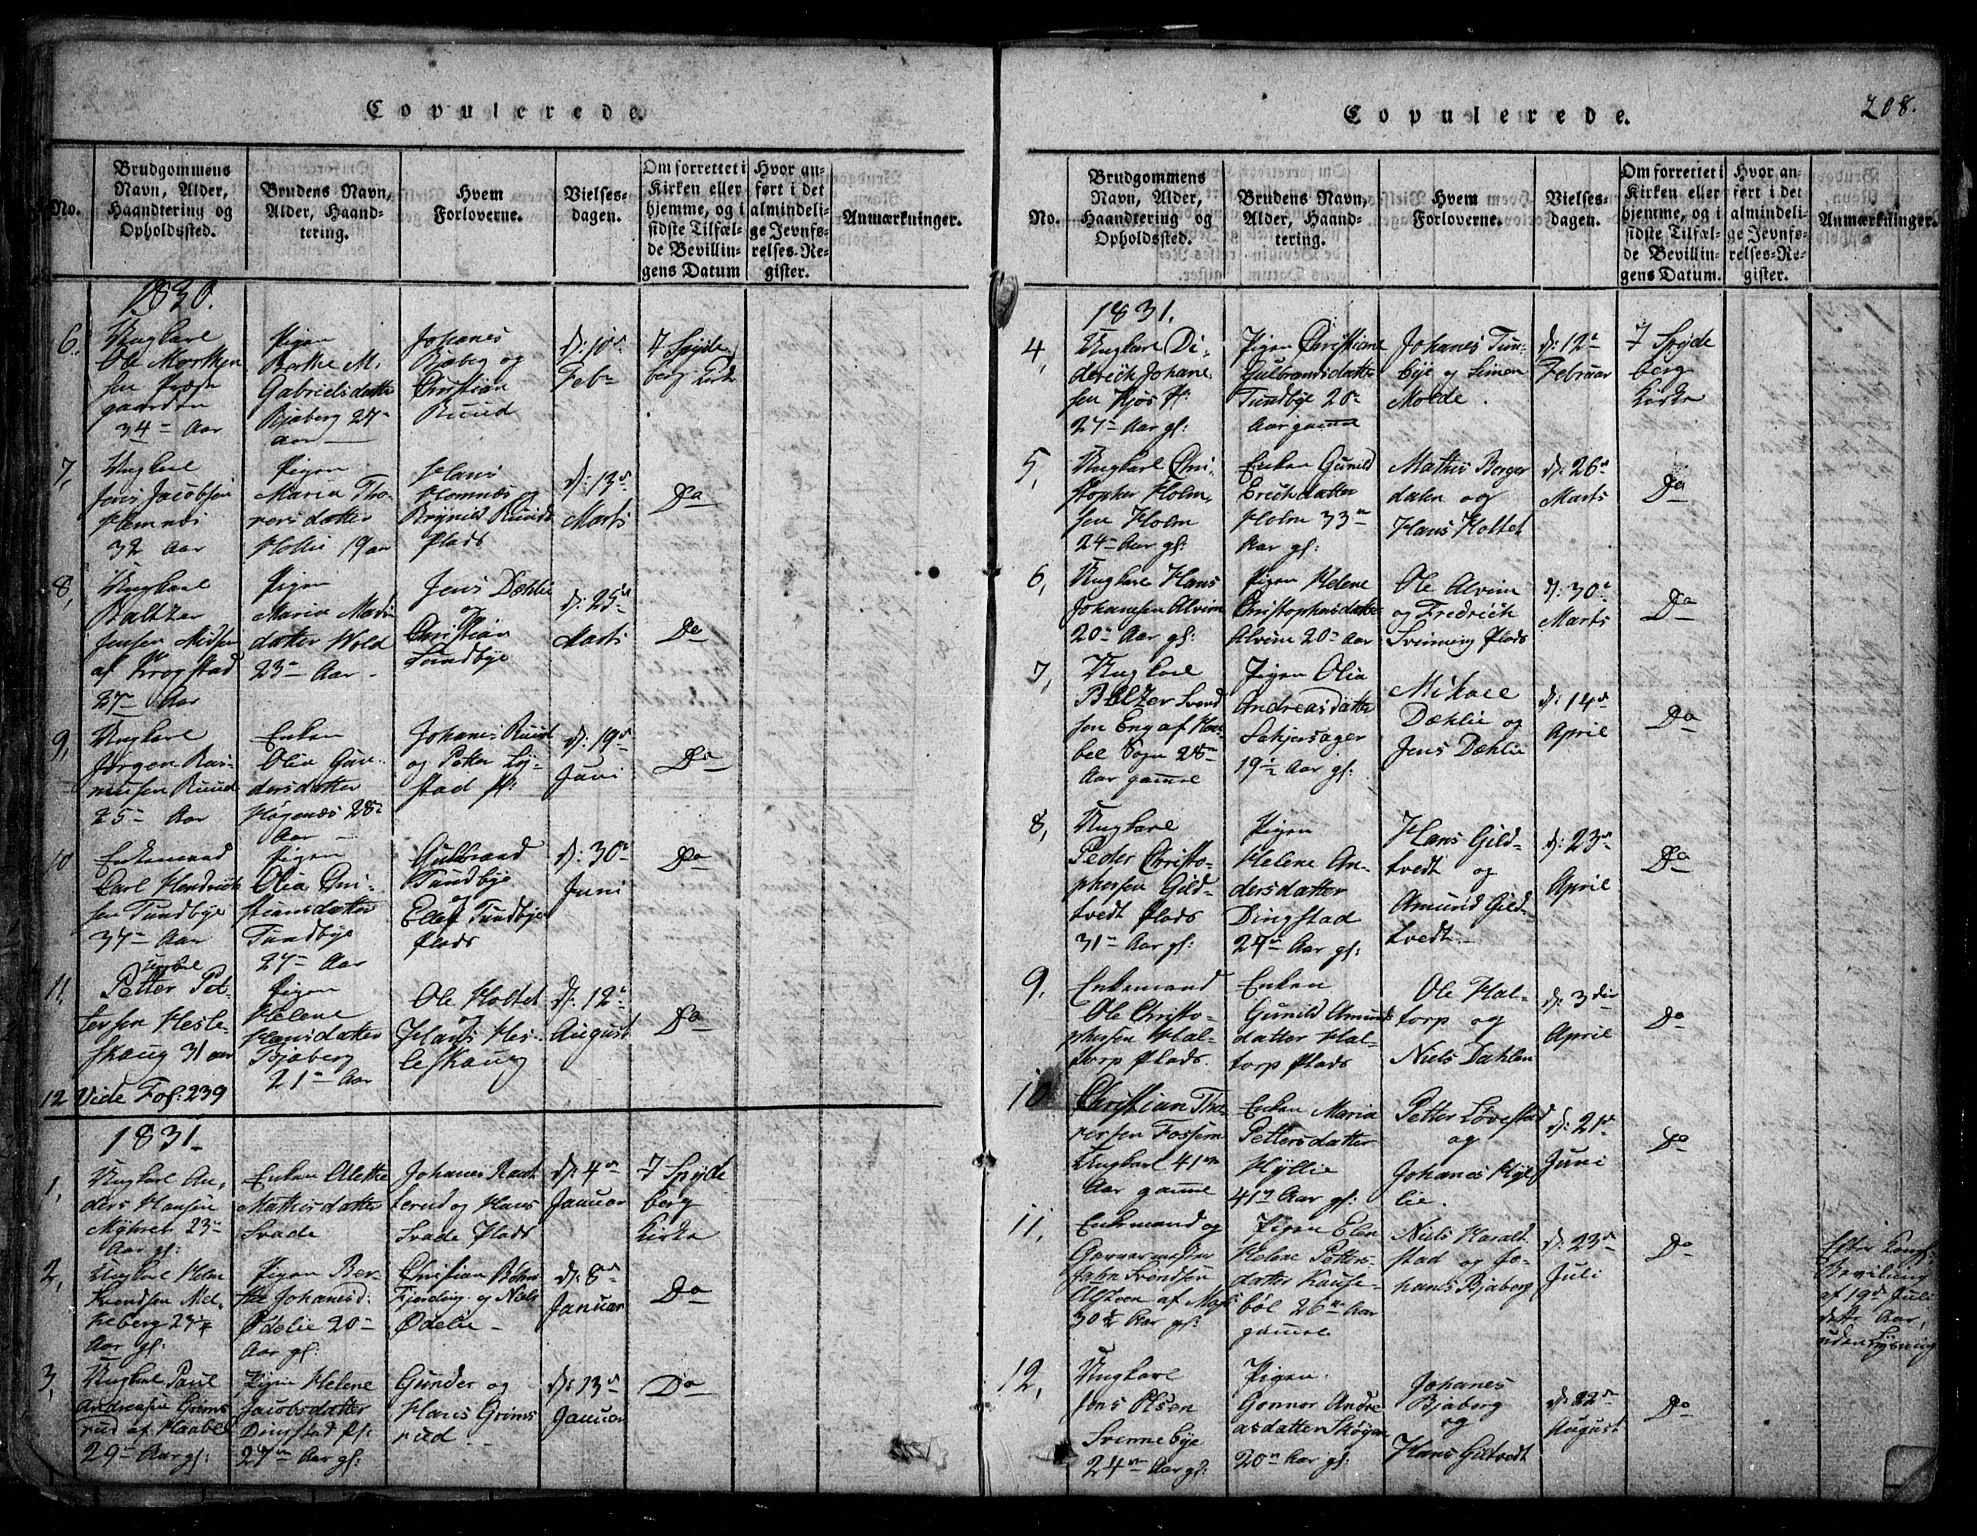 Copulerede.
No.
Brudgommens
Navn, Alder,
Haandtering og
Opholdssted.
Brudens Navn,
Alder, Haand-
tering.
Hvem
Forloverne.
Vielses-
dagen.
Om forrettet i
Kirken eller
hjemme, og i
sidste Tilfæl-
de Bevillin-
gens Datum
Hvor an-
ført i det
almindeli-
ge Jevnfø-
relses-Re-
gister.
Anmærkninger.
1830.
6.
Ungkarl
Ole Morthen
sen
gaarden
34 Aar
Pigen
Berthe M.
Gabrielsdatter
Bjaberg 24
aar
Johanes
Bjaberg og
Christian
Ruud
Feb
I Spyde
berg Kirke
7,
Ungkarl
Jens Jacobsen
Hemnæs
32 Aar
Pigen
Maria Tho-
rersdatter
Hollie 19 aar
Hans
Hemnæs og
Brynild Ruuds
Plads
d: 13de
Marts
Do
8,
Ungkarl
Baltzer
Jensen
af Krogstad
27 Aar
Pigen
Maria
datter Wold
23 Aar
Jens Dæhlie
og
Christian
Tundbye
d: 25de
Marts
Do
9,
Ungkarl
Jørgen Ras-
musen Ruud
25 Aar
Enken
Olia Gun-
dersdatter
Høgenæs 28
Aar
Johanes Ruud
og Petter Ly-
stad Pl:
d: 19de
Juni
Do
10
Enkemand
Carl Hendrich
sen Tundbye
37 Aar
Pigen
Olia Chri-
stiansdatter
Tundbye
27 Aar
Gulbrand
Tundbye
og
Ellef Tundbye
Plads
d: 30te
Juni
Do
11,
Ungkarl
Petter Pet-
tersen Hesle-
skaug 31 aar
Pigen
Helene
Hansdatter
Bjaberg
21 Aar
Ole Holtet
og
Hans Hes-
leskaug
d: 12te
August
Do
12 Vide Fol: 239
1831.
1,
Ungkarl An-
ders Hansen
23
Aar gl:
Enken Alette
Mathisdatter
Svade
Johanes
og Hans
Svade Plads
d: 4de
Januar
I Spyde
berg
Kirke
2,
Ungkarl
Svendsen Mel-
leberg
Aar gl:
Pigen Ber-
the Johanesd:
Ødelie 20
Aar gl:
Christian Bøhn
Fjerding og Niels
Ødelie
d: 8de
Januar
Do
3,
Ungkarl Paul
Andreasen Grims
rud af Haabel
29 Aar gl:
Pigen Helene
Jacobsdatter
Dingstad Pl:
27 Aar gl:
Gunder og
Hans Grims
rud
d: 13de
Januar
Do
Copulerede.
208.
No.
Brudgommens
Navn, Alder,
Haandtering og
Opholdssted.
Brudens Navn,
Alder, Haand-
tering.
Hvem
Forloverne.
Vielses-
dagen.
Om forrettet i
Kirken eller
hjemme, og i
sidste Tilfæl-
de Bevillin-
gens Datum.
Hvor an-
ført i det
almindeli-
ge Jevnfø-
relses-Re-
gister.
Anmærkninger.
1831.
4,
Ungkarl Di-
derich Johane-
sen Kjos Pl:
27 Aar gl:
Pigen Christiane
Gulbrandsdatter
Tundbye 28
Aar gamle
Johanes Tun-
bye og Simen
Molde.
d: 12te
Februar
I Spyde
berg
Kirke
5,
Ungkarl Chri-
stopher Holm-
sen Holm
24 Aar gl:
Enken Gunild
Erichsdatter
Holm 33
Aar gl:
Mathis Berger
dalen og
Hans Holtet
d: 26de
Marts
Do
6,
Ungkarl Hans
Johanesen Alvim
20 Aar gl:
Pigen Helene
Christophersdatter
Alvim 20 Aar
Ole Alvim
og Fredrich
Svinning Plads
d: 30te
Marts
Do
7,
Ungkarl
Baltzer Svend
sen Eng af Haa-
bel Sogn 28
Aar gamle
Pigen Olia
Andreasdatter
19½ Aar gl:
Mikael
Dæhlie og
Jens Dæhlie
d: 14de
April
Do
8,
Ungkarl
Peder Christo-
phersen Gild-
tvedt Plads
31 Aar gl:
Pigen
Helene An-
dersdatter
Dingstad
24 Aar gl:
Hans Gild-
tvedt og
Amund Gild-
tvedt.
d: 23de
April
Do
9,
Enkemand
Ole Christo-
phersen Hal-
torp Plads
Enken
Gunild Amunds
datter Hal-
torp Plads
Ole Hal-
torp og
Niels Dahlen
d: 3die
April
Do
10
Christian Tho-
rersen Fossum
Ungkarl 41
Aar gamle
Enken Maria
Pettersdatter
Hyllie
41 Aar gl:
Petter Løvestad
og
Johanes Hyl-
lie.
d: 21de
Juni
Do
11,
Enkemand og
Garvermester
John Svendsen
af Moss
30½ Aar gl:
Pigen Elen
Helene Petters-
datter Kause-
bøl 26 Aar
gamle
Niels Harald-
stad og Jo-
hanes Bjaberg
d: 23de
Juli
Do
Efter Kongl:
Bevilling
af 19de Juli
dette Aar,
uden Lysning
12,
Ungkarl
Jens Olsen
Svennebye
24 Aar gl:
Pigen
Gonnor Andre
asdatter Skøyen
20 Aar gl:
Johanes
Bjaberg
og
Hans Gildtvedt
d: 22de
August
Do